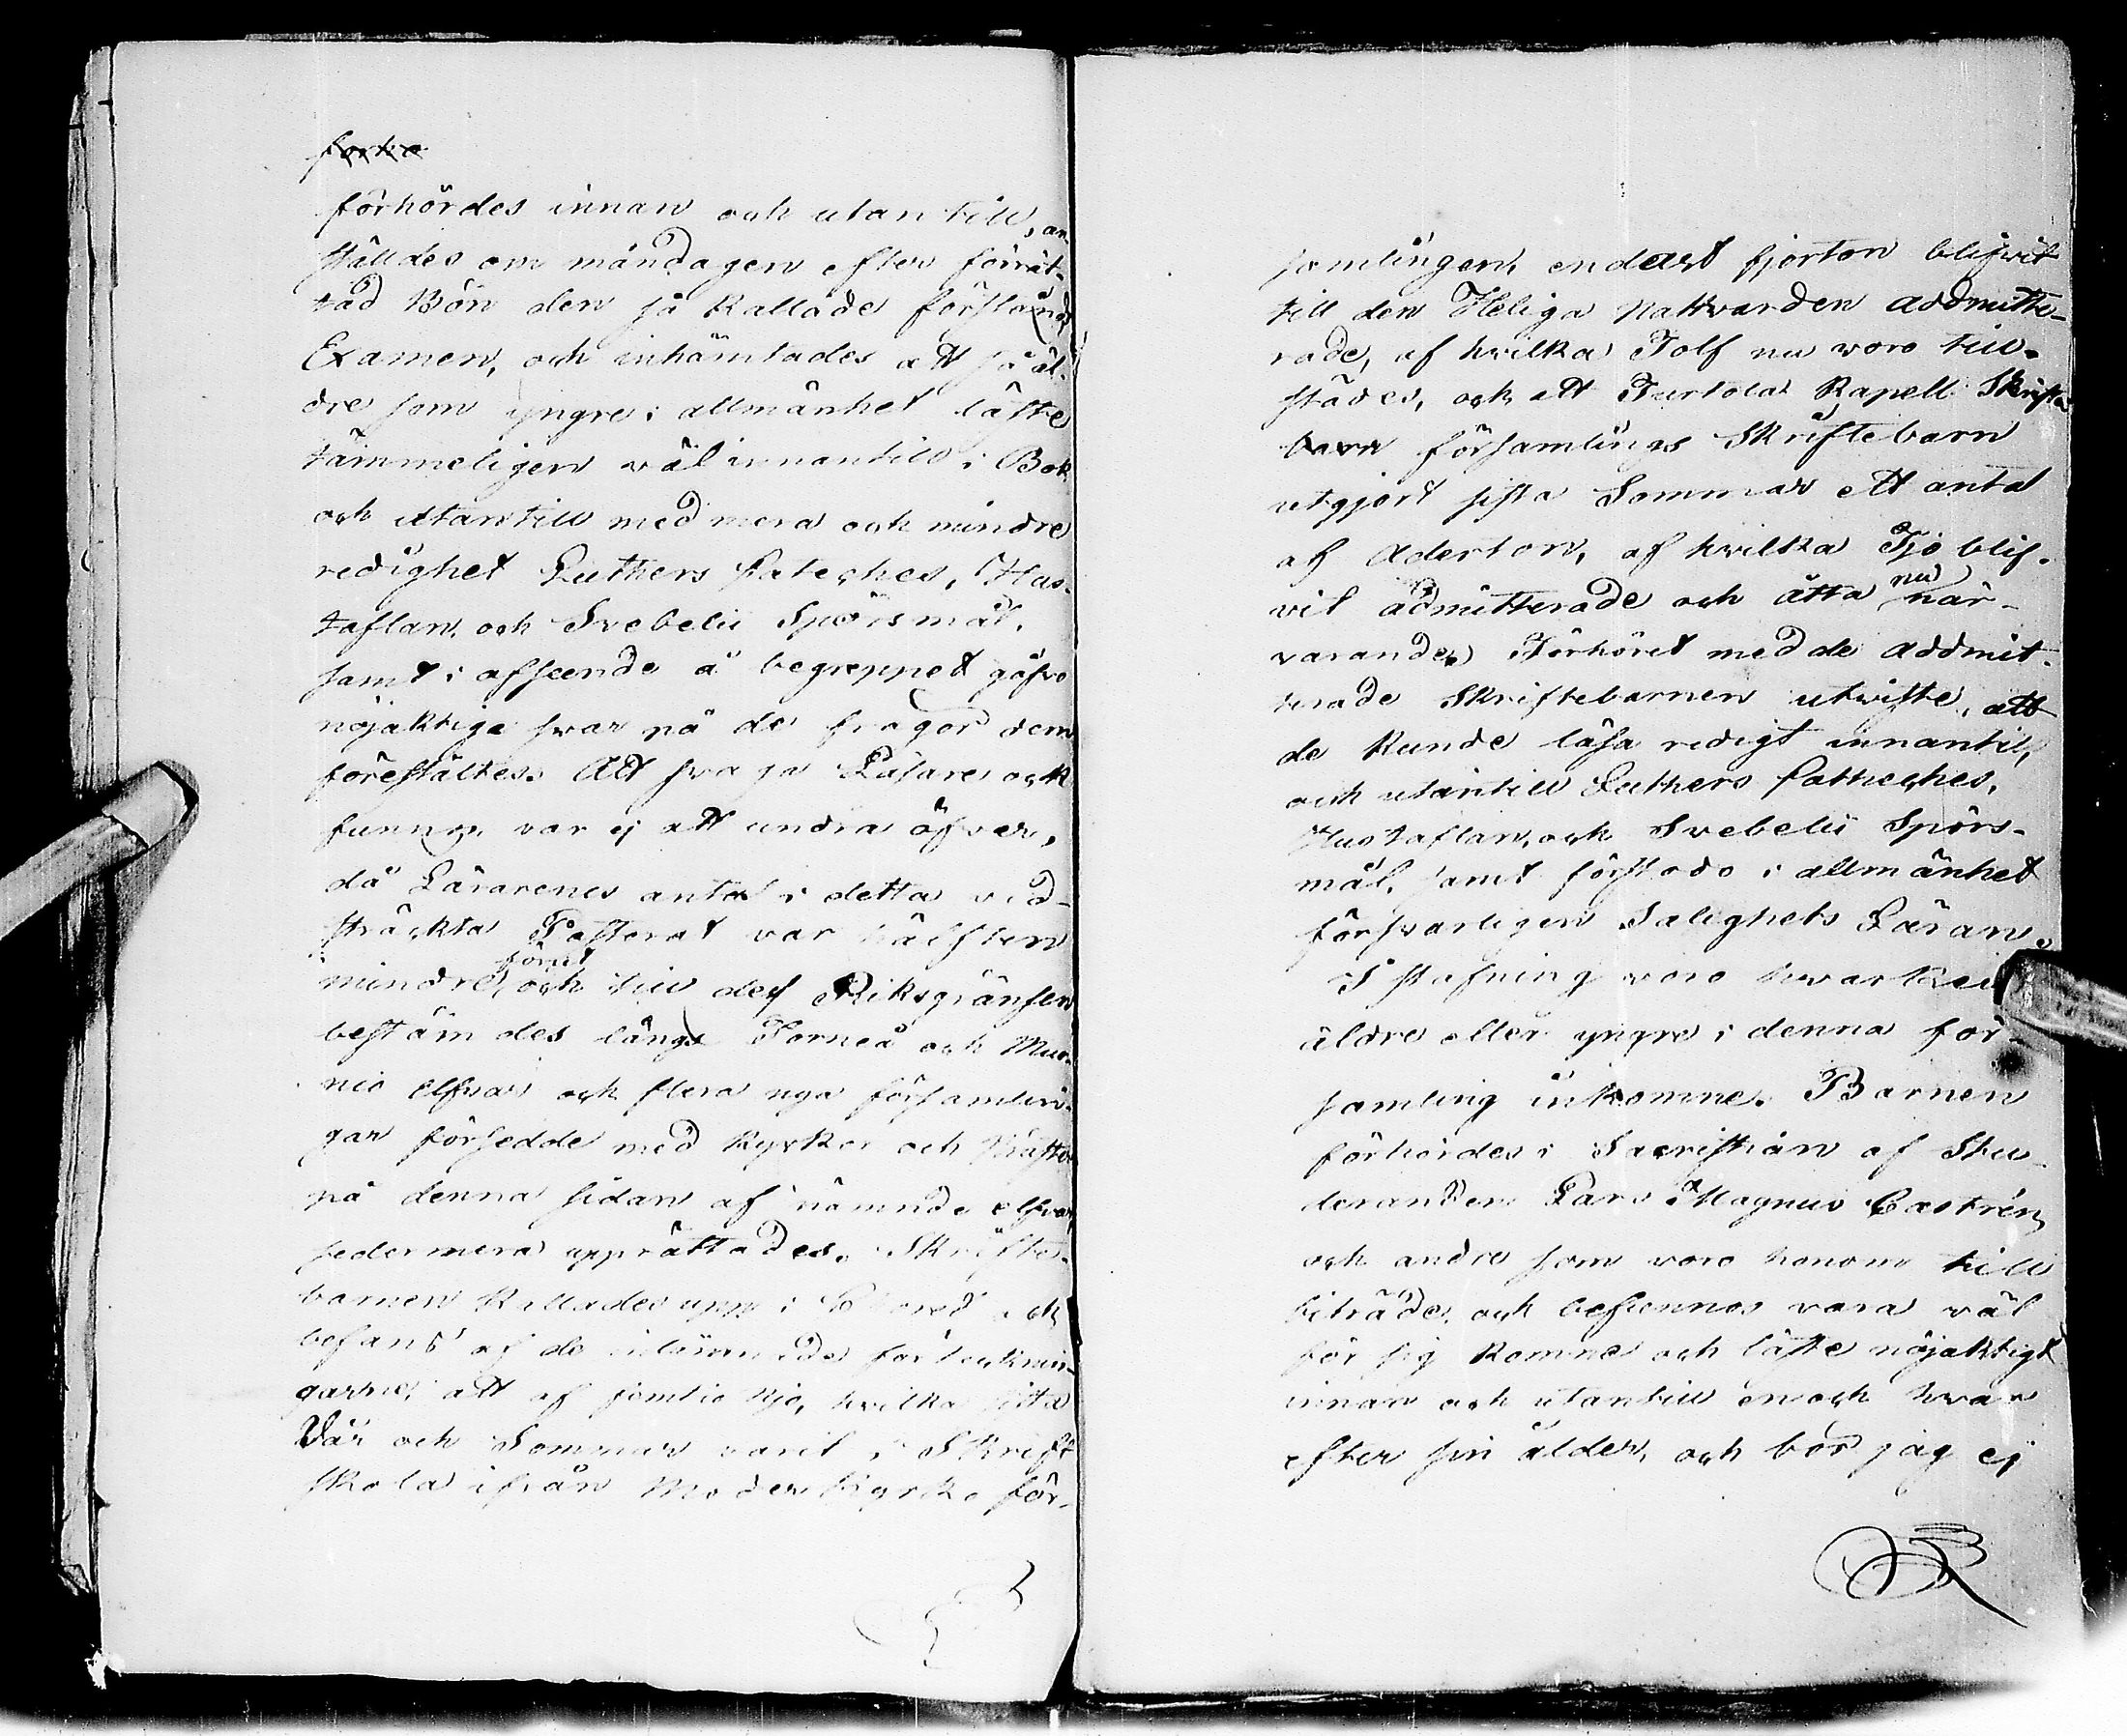 förhördes innan och utan till, an-
ställdes om måndagen efter förrät-
tad Bön den så kallade förstånds
Examen, och inhämtades att så äl-
dre som yngre i allmänhet läste
tämmeligen väl innantill i Bok
och utantill med mera och mindre
redighet Luthers Cateches, Hus-
taflan, och Svebelii Spörsmål,
samt i afseende å begreppet gåfvo
nöjaktige svar på de frågor dem
föreställtes. Att svaga Läsare ock
funnos var ej att undra öfver,
då Lärarenes antal i detta vid-
sträckta Pastorat var hälften
mindre förut, och till dess Riksgränsen
bestämdes längs Torneå och Muo-
nio elfvar och flera nya församlin-
gar försedde med kyrkor och Präster
på denna sidan af nämnde elfvar
sedermera upprättades. Skrifte-
barnen kallades upp i Choret och
befans af de inlämnade förtecknin-
garne, att af femtio tjo, hvilka sista
Vår och Sommar varit i Skrift
skola ifrån Moder kyrko för-
samlingen, endast fjorton blifvit
till den Heliga Nattvarden admitte-
rade, af hvilka Tolf nu voro till-
städes, och att Turtola Kapell Skrifte
barn församlings Skriftebarn
utgjort sista Sommar ett antal
af Aderton, af hvilka Tjo blif-
vit admitterade och åtta nu när-
varande. Förhöret med de admit-
terade Skriftebarnen utviste, att
de kunde läsa redigt innantill,
och utantill Luthers Catheches,
Hustaflan, och Svebelii Spörs-
mål, samt förstodo i allmänhet
försvarligen Salighets Läran.
I stafning voro hvarken
äldre eller yngre i denna för-
samling inkomne. Barnen
förhördes i Sacristian af Stu-
deranden Lars Magnus Castrén
och andre som voro honom till
biträde, och befunnos vara väl
för sig komne och läste nöjaktigt
innan och utantill en och hvar
efter sin ålder, och bör jag ej